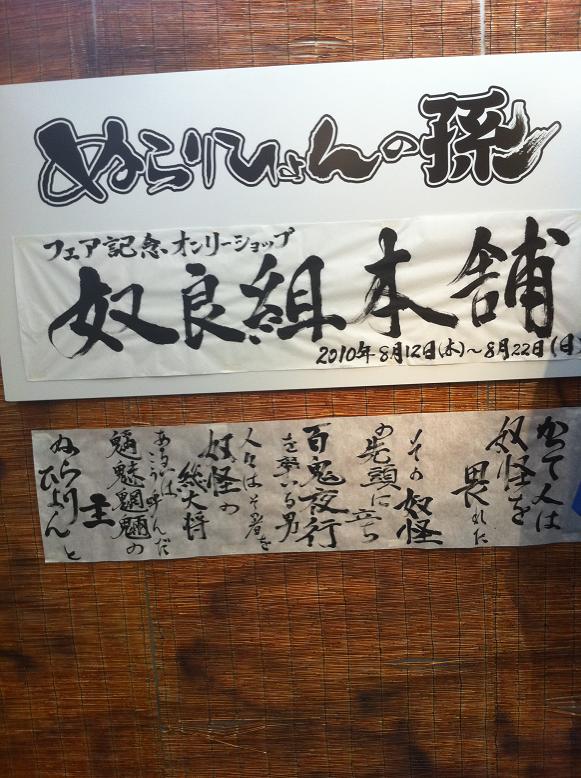 ぬらりひょんの孫
フェア記念オンリーショップ
奴良組本舗
2010年8月12日(木)～8月22日(日)
かつて人は
妖怪を
畏れた
その妖怪
の先頭に立ち
百鬼夜行
を率いる男
人々はその者を
妖怪の
総大将
あるいは
こう呼んだ
魑魅魍魎の
主
ぬらり
ひょんと